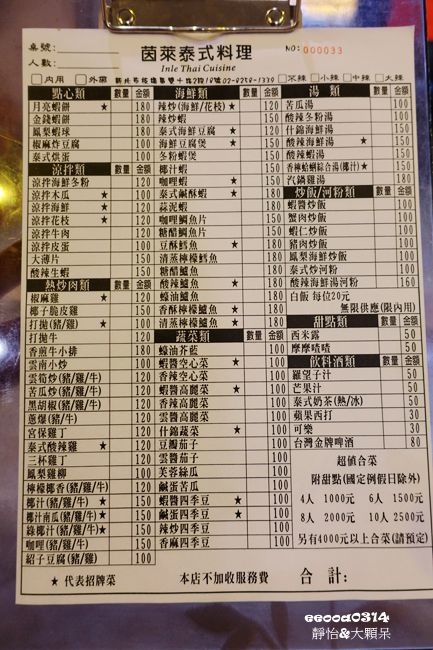 桌號:
人數:
茵萊泰式料理
Inle Thai Cuisine
NO: 000033
□內用 □外帶
□不辣 □小辣 □中辣 □大辣
點心類 數量 金額
月亮蝦餅 ★ 180
金錢蝦餅 180
鳳梨蝦球 180
椒麻炸豆腐 100
泰式烘蛋 100
涼拌類 數量 金額
涼拌海鮮冬粉
涼拌木瓜 ★
涼拌海鮮 ★
涼拌花枝 ★
涼拌牛肉
涼拌皮蛋
大薄片
酸辣生蝦
熱炒肉類 數量 金額
椒麻雞 ★
椰子脆皮雞
打拋(豬/雞) ★
打拋牛
香煎牛小排
雲南小炒
雲筍炒(豬/雞/牛)
苦瓜炒(豬/雞/牛)
黑胡椒(豬/雞/牛)
蔥爆(豬/雞/牛)
宮保雞丁
泰式酸辣雞 ★
三杯雞丁
鳳梨雞柳
檸檬椰香(豬/雞/牛)
椰汁(豬/雞/牛) ★
椰汁南瓜(豬/雞/牛) ★
綠椰汁(豬/雞/牛) ★
咖哩(豬/雞/牛)
紹子豆腐(豬/雞)
海鮮類 數量 金額
辣炒(海鮮/花枝) ★
辣炒蝦
泰式海鮮豆腐 ★
海鮮豆腐煲 ★
冬粉蝦煲
椰汁蝦
咖哩蝦 ★
泰式鹹酥蝦 ★
蒜泥蝦
咖哩鯛魚片
糖醋鯛魚片
豆酥鱈魚 ★
清蒸檸檬鱈魚
糖醋鱸魚
酸辣鱸魚 ★
蠔油鱸魚
香酥檸檬鱸魚 ★
清蒸檸檬鱸魚 ★
蔬菜類 數量 金額
蠔油芥藍
蝦醬空心菜 ★
香辣空心菜
蝦醬高麗菜
香辣高麗菜
雲醬高麗菜
什錦蔬菜 ★
豆瓣茄子
雲醬茄子
芙蓉絲瓜
鹹蛋苦瓜
蝦醬四季豆 ★
鹹蛋四季豆 ★
辣炒四季豆
香麻四季豆
湯類 數量 金額
苦瓜湯 100
酸辣冬粉湯 100
什錦海鮮湯 150
酸辣海鮮湯 ★ 150
酸辣蝦湯 150
香檸蛤蜊綜合湯(椰汁) ★ 150
汽鍋雞湯
炒飯/河粉類 數量 金額
蝦醬炒飯
蟹肉炒飯
蝦仁炒飯
豬肉炒飯
鳳梨海鮮炒飯
泰式炒河粉 100
酸辣海鮮湯河粉 160
白飯 每位20元
無限供應(限內用)
甜點類 數量 金額
西米露 50
摩摩喳喳 50
飲料酒類 數量 金額
羅望子汁 50
芒果汁 50
泰式奶茶(熱/冰) 50
蘋果西打 30
可樂 30
台灣金牌啤酒 80
超值合菜
附甜點(國定例假日除外)
4人 1000元 6人 1500元
8人 2000元 10人 2500元
另有4000元以上合菜(請預定)
★ 代表招牌菜 本店不加收服務費 合 計:
eeooa0314
靜怡&大顆呆